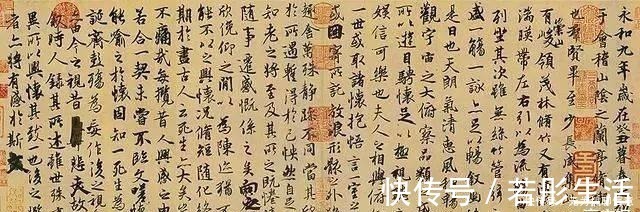 永和九年歲在癸丑暮春
于會稽山陰之蘭亭
也群賢畢至少長咸集
有崇山峻領茂林脩竹又有
湍暎帶左右引以為流
列坐其次雖無絲竹管
盛一觴一詠亦足以暢敘
是日也天朗氣清惠風
觀宇宙之大俯察品類
所以遊目騁懷足以極
娛信可樂也夫人之相與
一世或取諸懷抱悟言一室
或因寄所託放浪形骸之
趣舍萬殊靜躁不同當
於所遇蹔得於己怏然自
知老之將至及其所之既惓
隨事遷感慨係之矣向之
欣俛仰之閒以為陳迹猶不
能不以之興懷況脩短隨化終
期於盡古人云死生亦大矣豈
不痛哉每攬昔人興感之由
若合一契未嘗不臨文嗟悼
能喻之於懷固知一死生為
誕齊彭殤為妄作後之視
亦由今之視昔悲夫故
敘時人錄其所述雖世殊事
異所以興懷其致一也後之
者亦將有感於斯文
快传号／若彤生活